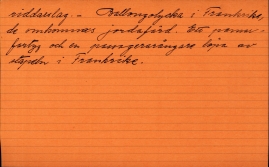 riddarslag. – Ballongolycka i Frankrike,
de omkomnas jordafärd. Ett pansar-
fartyg och en passagerarångare löpa av
stapeln i Frankrike.